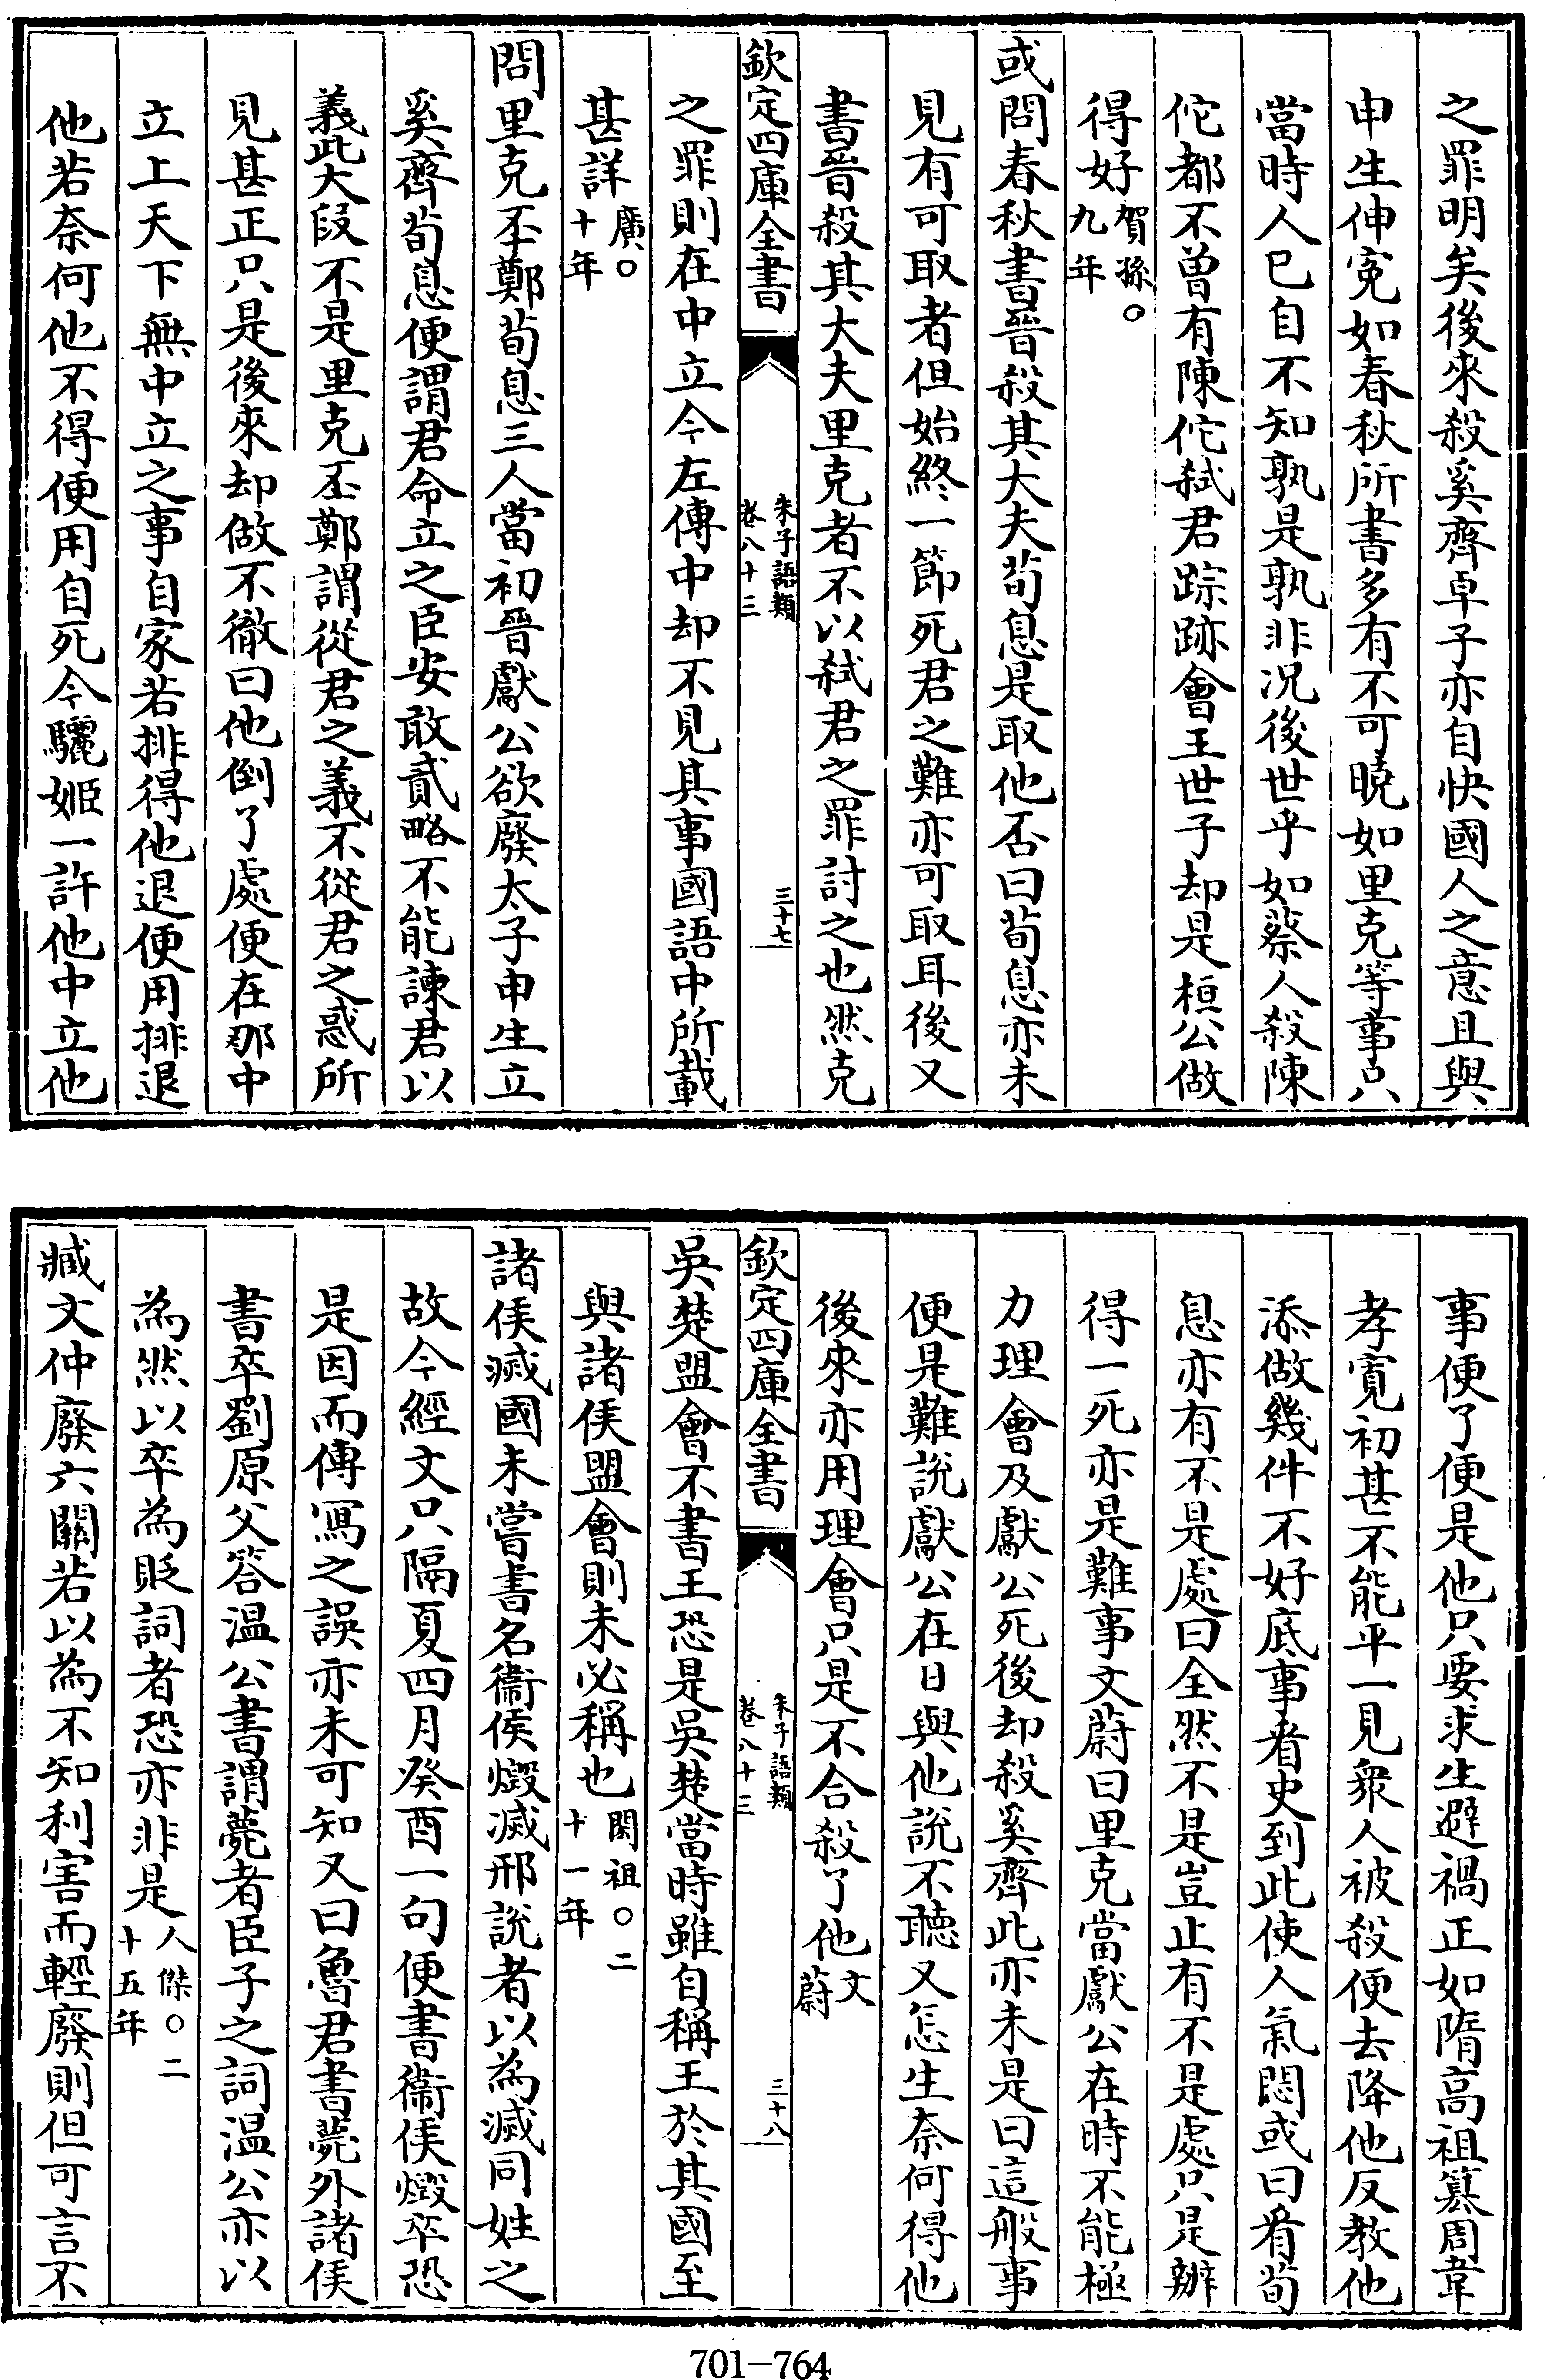 之罪明矣後來殺奚齊卓子亦自快國人之意且與
申生伸寃如春秋所書多有不可曉如里克等事只
當時人已自不知孰是孰非况後世乎如蔡人殺陳
佗都不曽有陳佗弑君踪跡會王世子却是桓公做
得好賀孫○九年
或問春秋書晉殺其大夫荀息是取他否曰荀息亦未
見有可取者但始終一節死君之難亦可取耳後又
書晉殺其大夫里克者不以弑君之罪討之也然克
欽定四庫全書
朱子語類
卷八十三
三十七
之罪則在中立今左傳中却不見其事國語中所載
甚詳廣○十年
問里克丕鄭荀息三人當初晉獻公欲廢太子申生立
奚齊荀息便謂君命立之臣安敢貳略不能諫君以
義此大段不是里克丕鄭謂從君之義不從君之惑所
見甚正只是後來却做不徹曰他倒了處便在那中
立上天下無中立之事自家若排得他退便用排退
他若奈何他不得便用自死今驪姬一許他中立他
事便了便是他只要求生避禍正如隋高祖簒周韋
孝寛初甚不能平一見衆人被殺便去降他反教他
添做幾件不好底事看史到此使人氣悶或曰看荀
息亦有不是處曰全然不是豈止有不是處只是辦
得一死亦是難事文蔚曰里克當獻公在時不能極
力理會及獻公死後却殺奚齊此亦未是曰這般事
便是難說獻公在日與他說不聽又怎生奈何得他
後來亦用理會只是不合殺了他文蔚
欽定四庫全書
朱子語類
卷八十三
三十八
吳楚盟會不書王恐是吳楚當時雖自稱王於其國至
與諸侯盟會則未必稱也閎祖○二十一年
諸侯滅國未嘗書名衞侯燬滅邢說者以為滅同姓之
故今經文只隔夏四月癸酉一句便書衞侯燬卒恐
是因而傳寫之誤亦未可知又曰魯君書薨外諸侯
書卒劉原父答温公書謂薨者臣子之詞温公亦以
為然以卒為貶詞者恐亦非是人傑○二十五年
臧文仲廢六關若以為不知利害而輕廢則但可言不
701-764